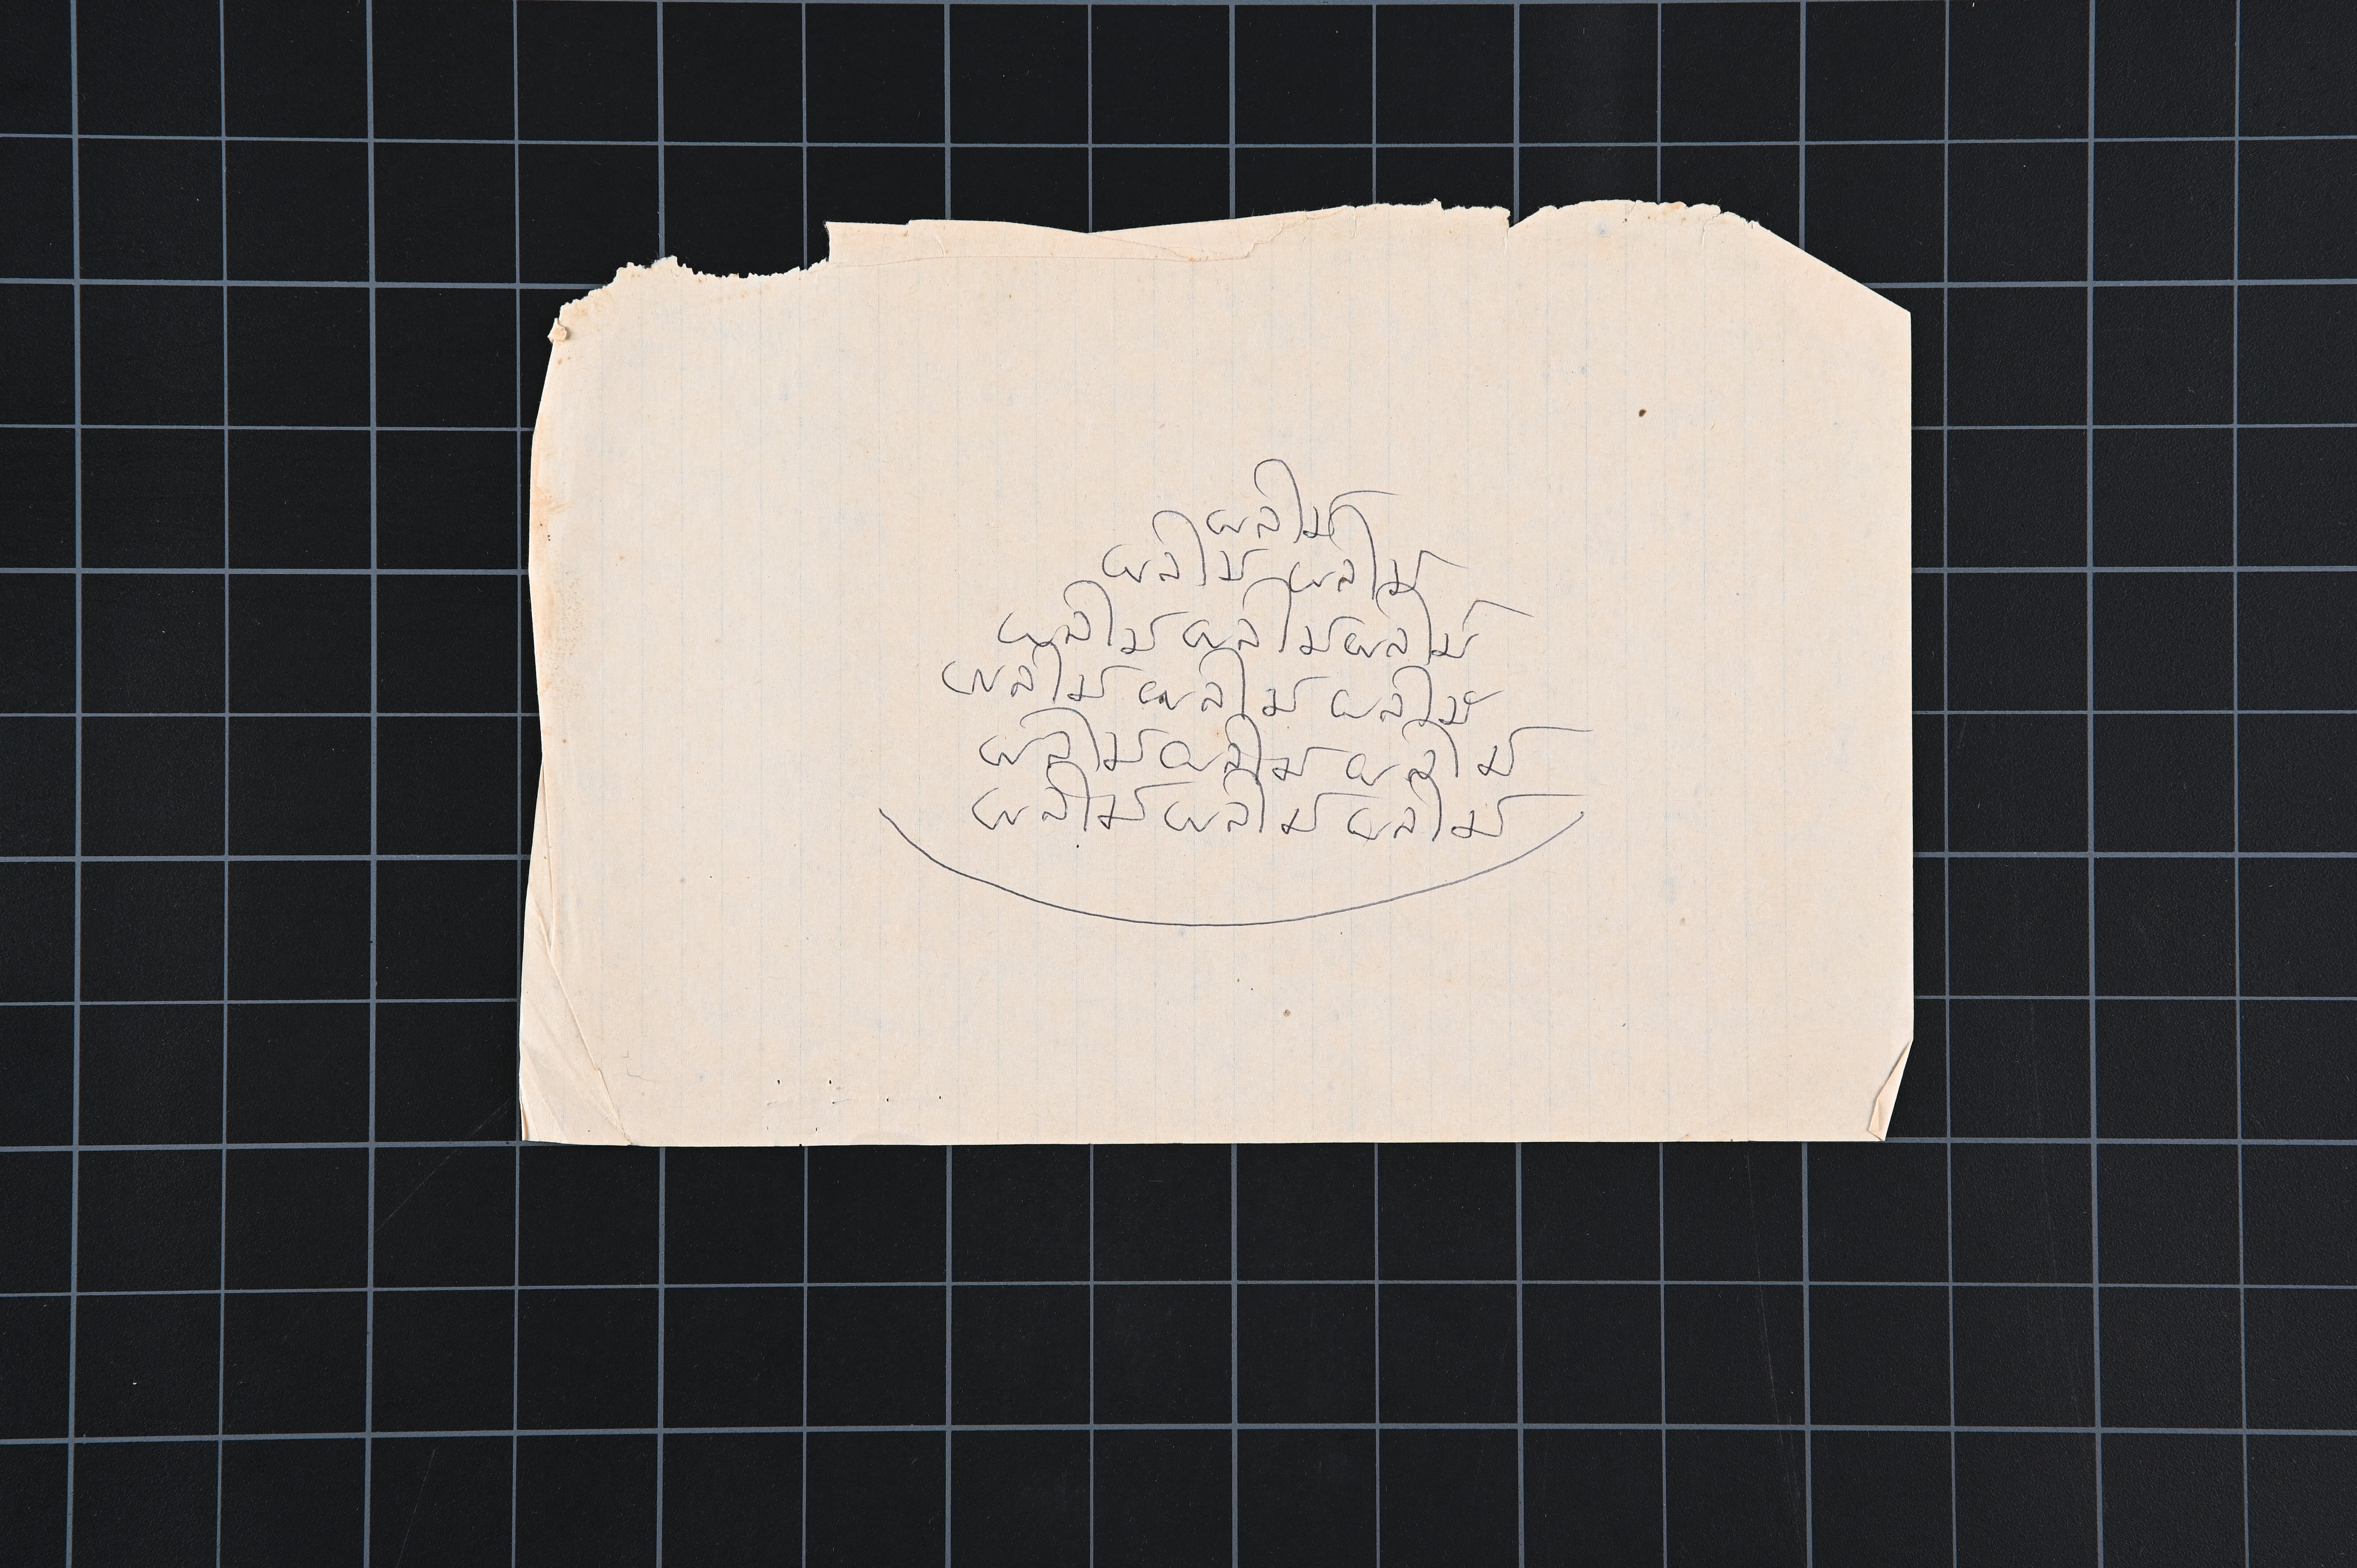 ผลไม้
ผลไม้ ผลไม้
ผลไม้ ผลไม้ ผลไม้
ผลไม้ ผลไม้ ผลไม้
ผลไม้ ผลไม้ ผลไม้
ผลไม้ ผลไม้ ผลไม้